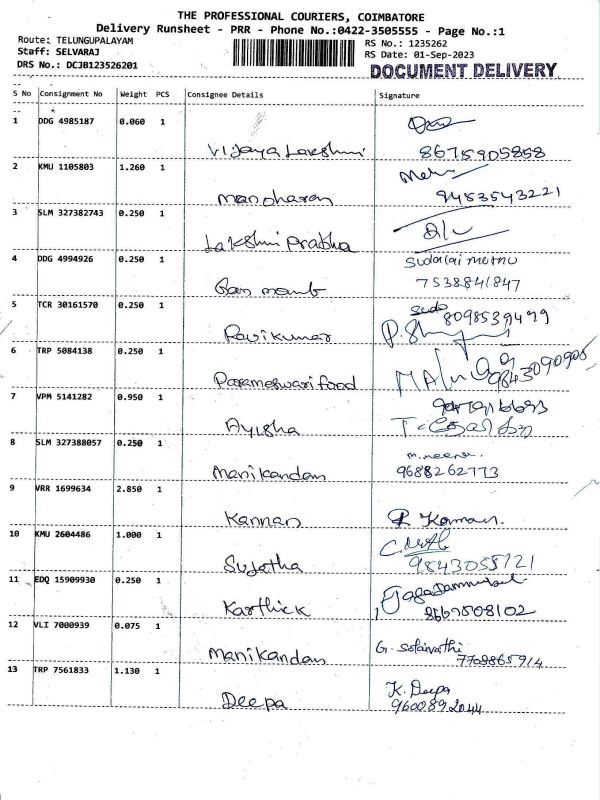 THE PROFESSIONAL COURIERS, COIMBATORE
Delivery Runsheet - PRR - Phone No.:0422-3505555 - Page No.:1
Route: TELUNGUPALAYAM
Staff: SELVARAJ
DRS No.: DCJB123526201
RS No.: 1235262
RS Date: 01-Sep-2023
DOCUMENT DELIVERY
S No Consignment No Weight PCS Consignee Details Signature
1 DDG 4985187 0.060 1
Vijaya Lakshmi 8675905858
2 KMU 1105803 1.260 1
manoharan 9453543221
3 SLM 327382743 0.250 1
Lakshmi Prabha
4 DDG 4994926 0.250 1 Sudalai muthu
7538841847
5 TCR 30161570 0.250 1
8098539499
Ravikumar
6 TRP 5084138 0.250 1
9843090905
Parameswari food
7 VPM 5141282 0.950 1
Ayisha
8 SLM 327388057 0.250 1 m.meena
Manikandan 9688262773
9 VRR 1699634 2.850 1
Kannan
10 KMU 2604486 1.000 1
Sujatha 9843055721
11 EDQ 15909930 0.250 1
Karthick 8667508102
12 VLI 7000939 0.075 1
Manikandan 7708865914
13 TRP 7561833 1.130 1 K. Deepa
Deepa 9600892044